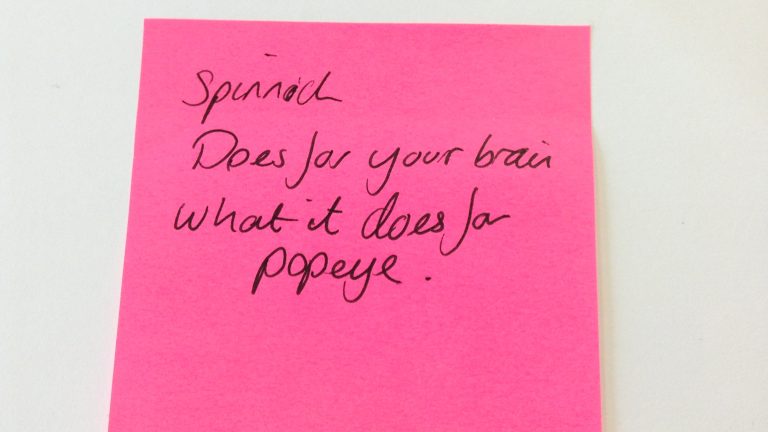 Spinnach
Does for your brain
what it does for
popeye.